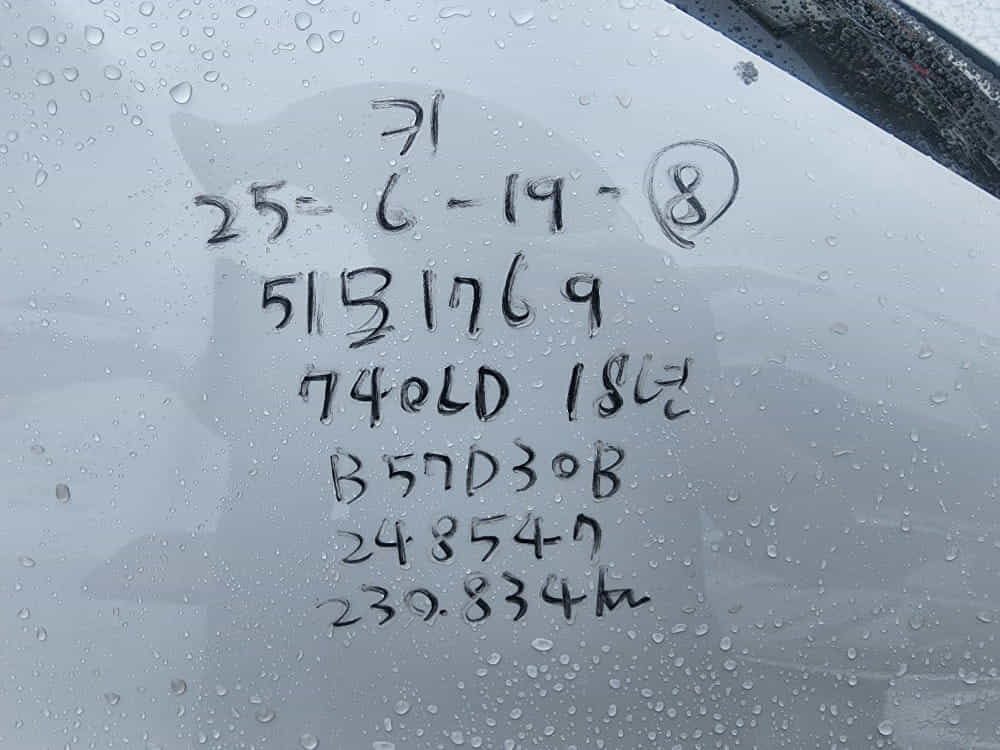 키
25-6-19-8
51모1769
740LD 18년
B57D30B
248547
230.834km